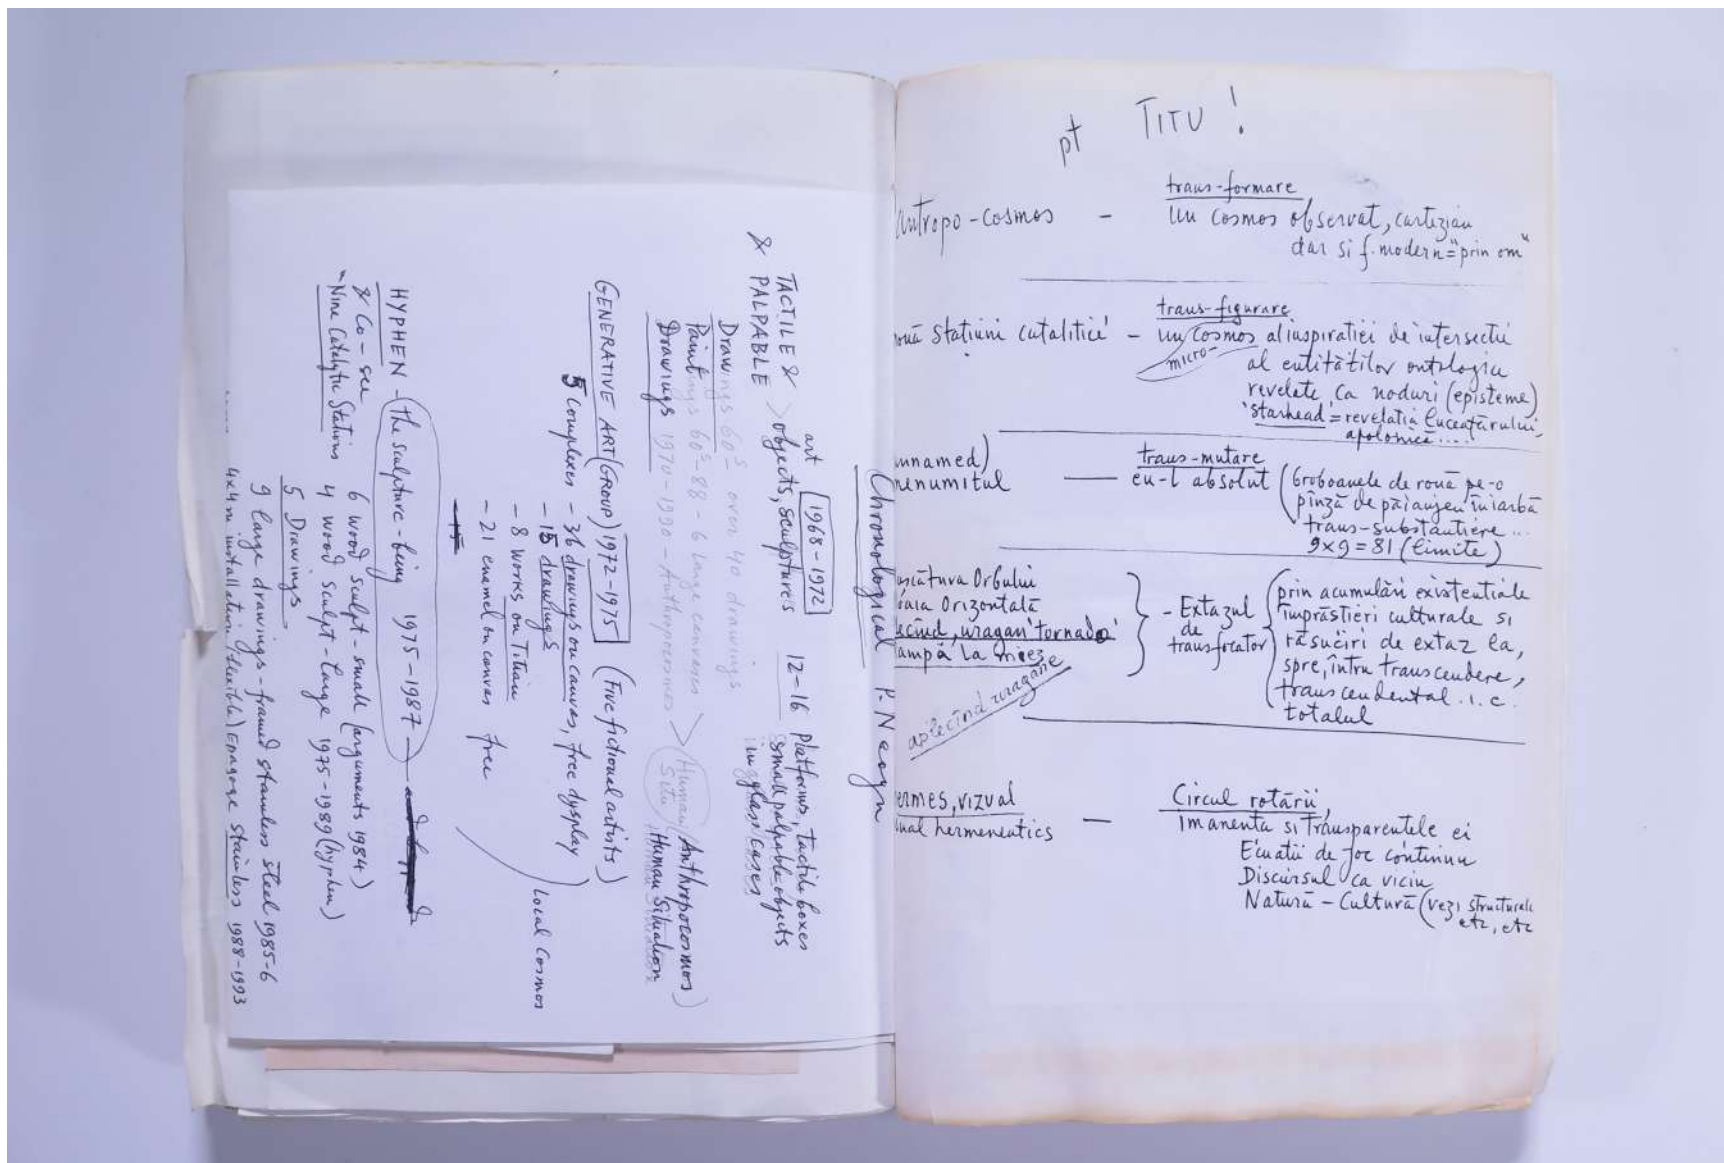 Chronological P. Neagu
art 1968-1972
TACTILE & > objects, sculptures 12-16 platforms, tactile boxes
& PALPABLE small palpable objects
in glass cases
Drawings 60s over 40 drawings
Paintings 60s-88 - 6 large canvases > (Human/Anthropocosmos)
Drawings 1970-1990 - Anthropocosmos Situ Human Situation
GENERATIVE ART (GROUP) 1972-1975 (Five fictional artists)
5 complexes - 36 drawings on canvas, free dysplay
- 15 drawings
- 8 works on Titan
- 21 enamel on canvas free
Local Cosmos
HYPHEN - (the sculpture-being 1975-1987)
& Co-see 6 wood sculpt - small (arguments 1984)
"Nine Catalytic Stations 4 wood sculpt - large 1975-1989 (hyphen)
5 Drawings
9 large drawings - framed stainless steel 1985-6
4x4m installation (flexible) Epagoge stainless 1988-1993
pt TITU !
trans-formare
antropo-cosmos - un cosmos observat, cartezian
dar si f. modern = "prin om"
trans-figurare
nouă Statiuni catalitice - un cosmos al inspiratiei de intersectii
micro-
al entitătilor ontologice
revelate ca noduri (episteme)
'starhead' = revelatia Luceafărului-
apolonică ....
trans-mutare
unnamed)
nenumitul — eu-l absolut (broboanele de rouă pe-o
pînză de păianjen în iarbă
trans-substantiere ...
9x9=81 (limite)
Orbului
Orizontală
uragan 'tornado'
La miez
aplecînd uragane
- Extazul
de
transfocator
prin acumulări existentiale
împrăstieri culturale si
răsuciri de extaz la,
spre, întru transcendere,
transcendental i.c.
totalul
ermes, vizual — Circul rotării,
ual hermeneutics Imanenta si Transparentele ei
Ecuatii de joc continuu
Discursul ca viciu
Natură - Cultură (vezi structurale
etc, etc